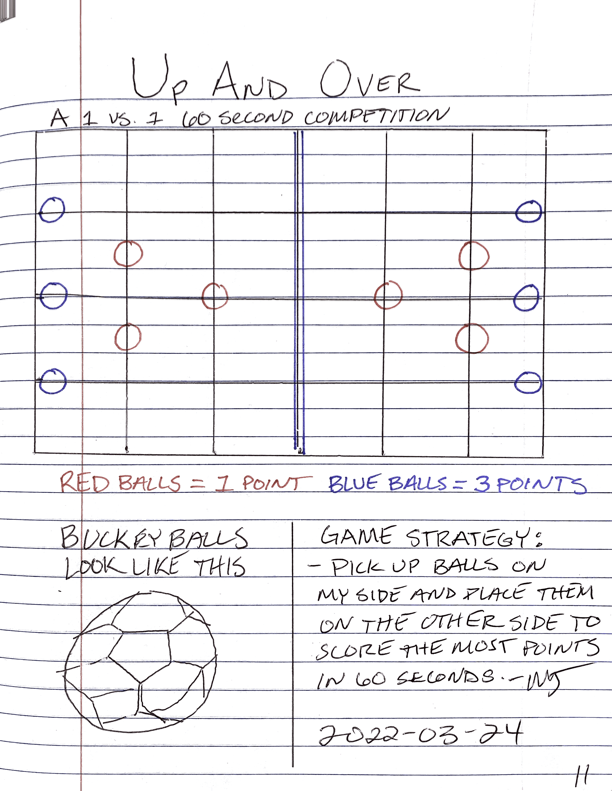 UP AND OVER
A 1 VS. 1 60 SECOND COMPETITION
RED BALLS = 1 POINT BLUE BALLS = 3 POINTS
BUCKEY BALLS
LOOK LIKE THIS
GAME STRATEGY:
- PICK UP BALLS ON
MY SIDE AND PLACE THEM
ON THE OTHER SIDE TO
SCORE THE MOST POINTS
IN 60 SECONDS. -
2022-03-24
11